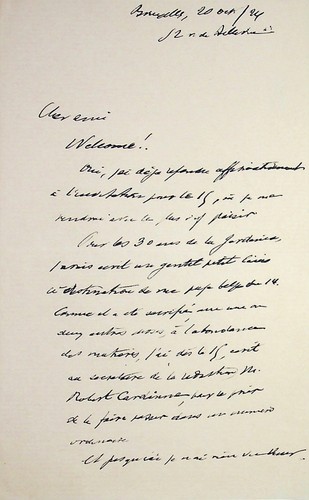 Bruxelles, 20 oct/24
52 r. de
Cher ami
Welcome!..
Oui, j'ai déjà répondu affirmativement
à l'invitation pour le 15, où je me
rendrai avec le plus vif plaisir
Pour les 30 ans de la
J'avais écrit un gentil petit
à destination de ma page belge du 14.
Comme il a été sacrifié avec une ou
deux autres choses, à l'abondance
des matières, j'ai dès le 15 écrit
au secrétaire de la rédaction M.
Robert pour le prier
de le faire passer dans un numéro
ordinaire.
Et je n'ai rien